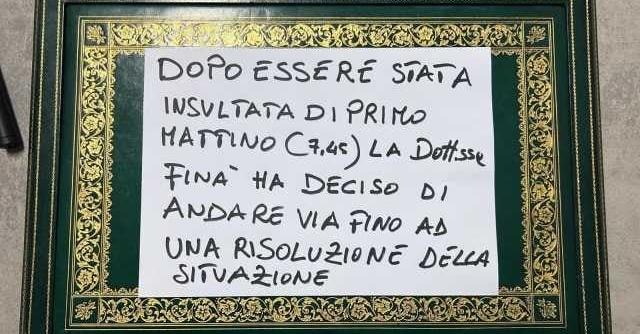 DOPO ESSERE STATA
INSULTATA DI PRIMO
MATTINO (7,45) LA Dottsse
FINA' HA DECISO DI
ANDARE VIA FINO AD
UNA RISOLUZIONE DELLA
SITUAZIONE